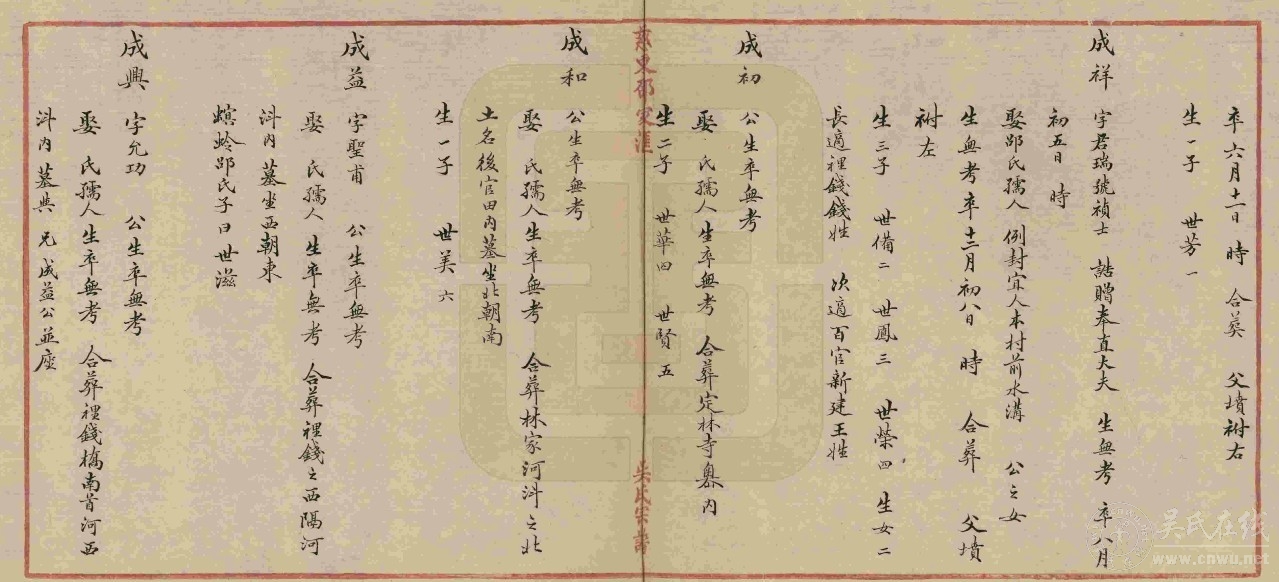 卒六月十一日 時 合葬 父墳祔右
生一子 世芳一
成祥 字君瑞號禎士 誥贈奉直大夫 生無考 卒八月
初五日 時
娶邵氏孺人 例封宜人本村前水溝 公之女
生無考 卒十二月初八日 時 合葬 父墳
祔左
生三子 世備二 世鳳三 世榮四 生女二
長適裡錢錢姓 次適百官新建王姓
成初 公生卒無考
娶 氏孺人生卒無考 合葬定林寺奧內
生二子 世華四 世賢五
慈東邵家匯
吳氏宗譜
成和 公生卒無考
娶 氏孺人生卒無考 合葬林家河㳆之北
土名後官田內墓坐北朝南
生一子 世美六
成益 字聖甫 公生卒無考
娶 氏孺人生卒無考 合葬裡錢之西隔河
㳆內墓坐西朝東
螟蛉邵氏子曰世滋
成興 字允功 公生卒無考
娶 氏孺人生卒無考 合葬裡錢橋南首河西
㳆內墓與兄成益公並座
吴氏在线
www.cnwu.net